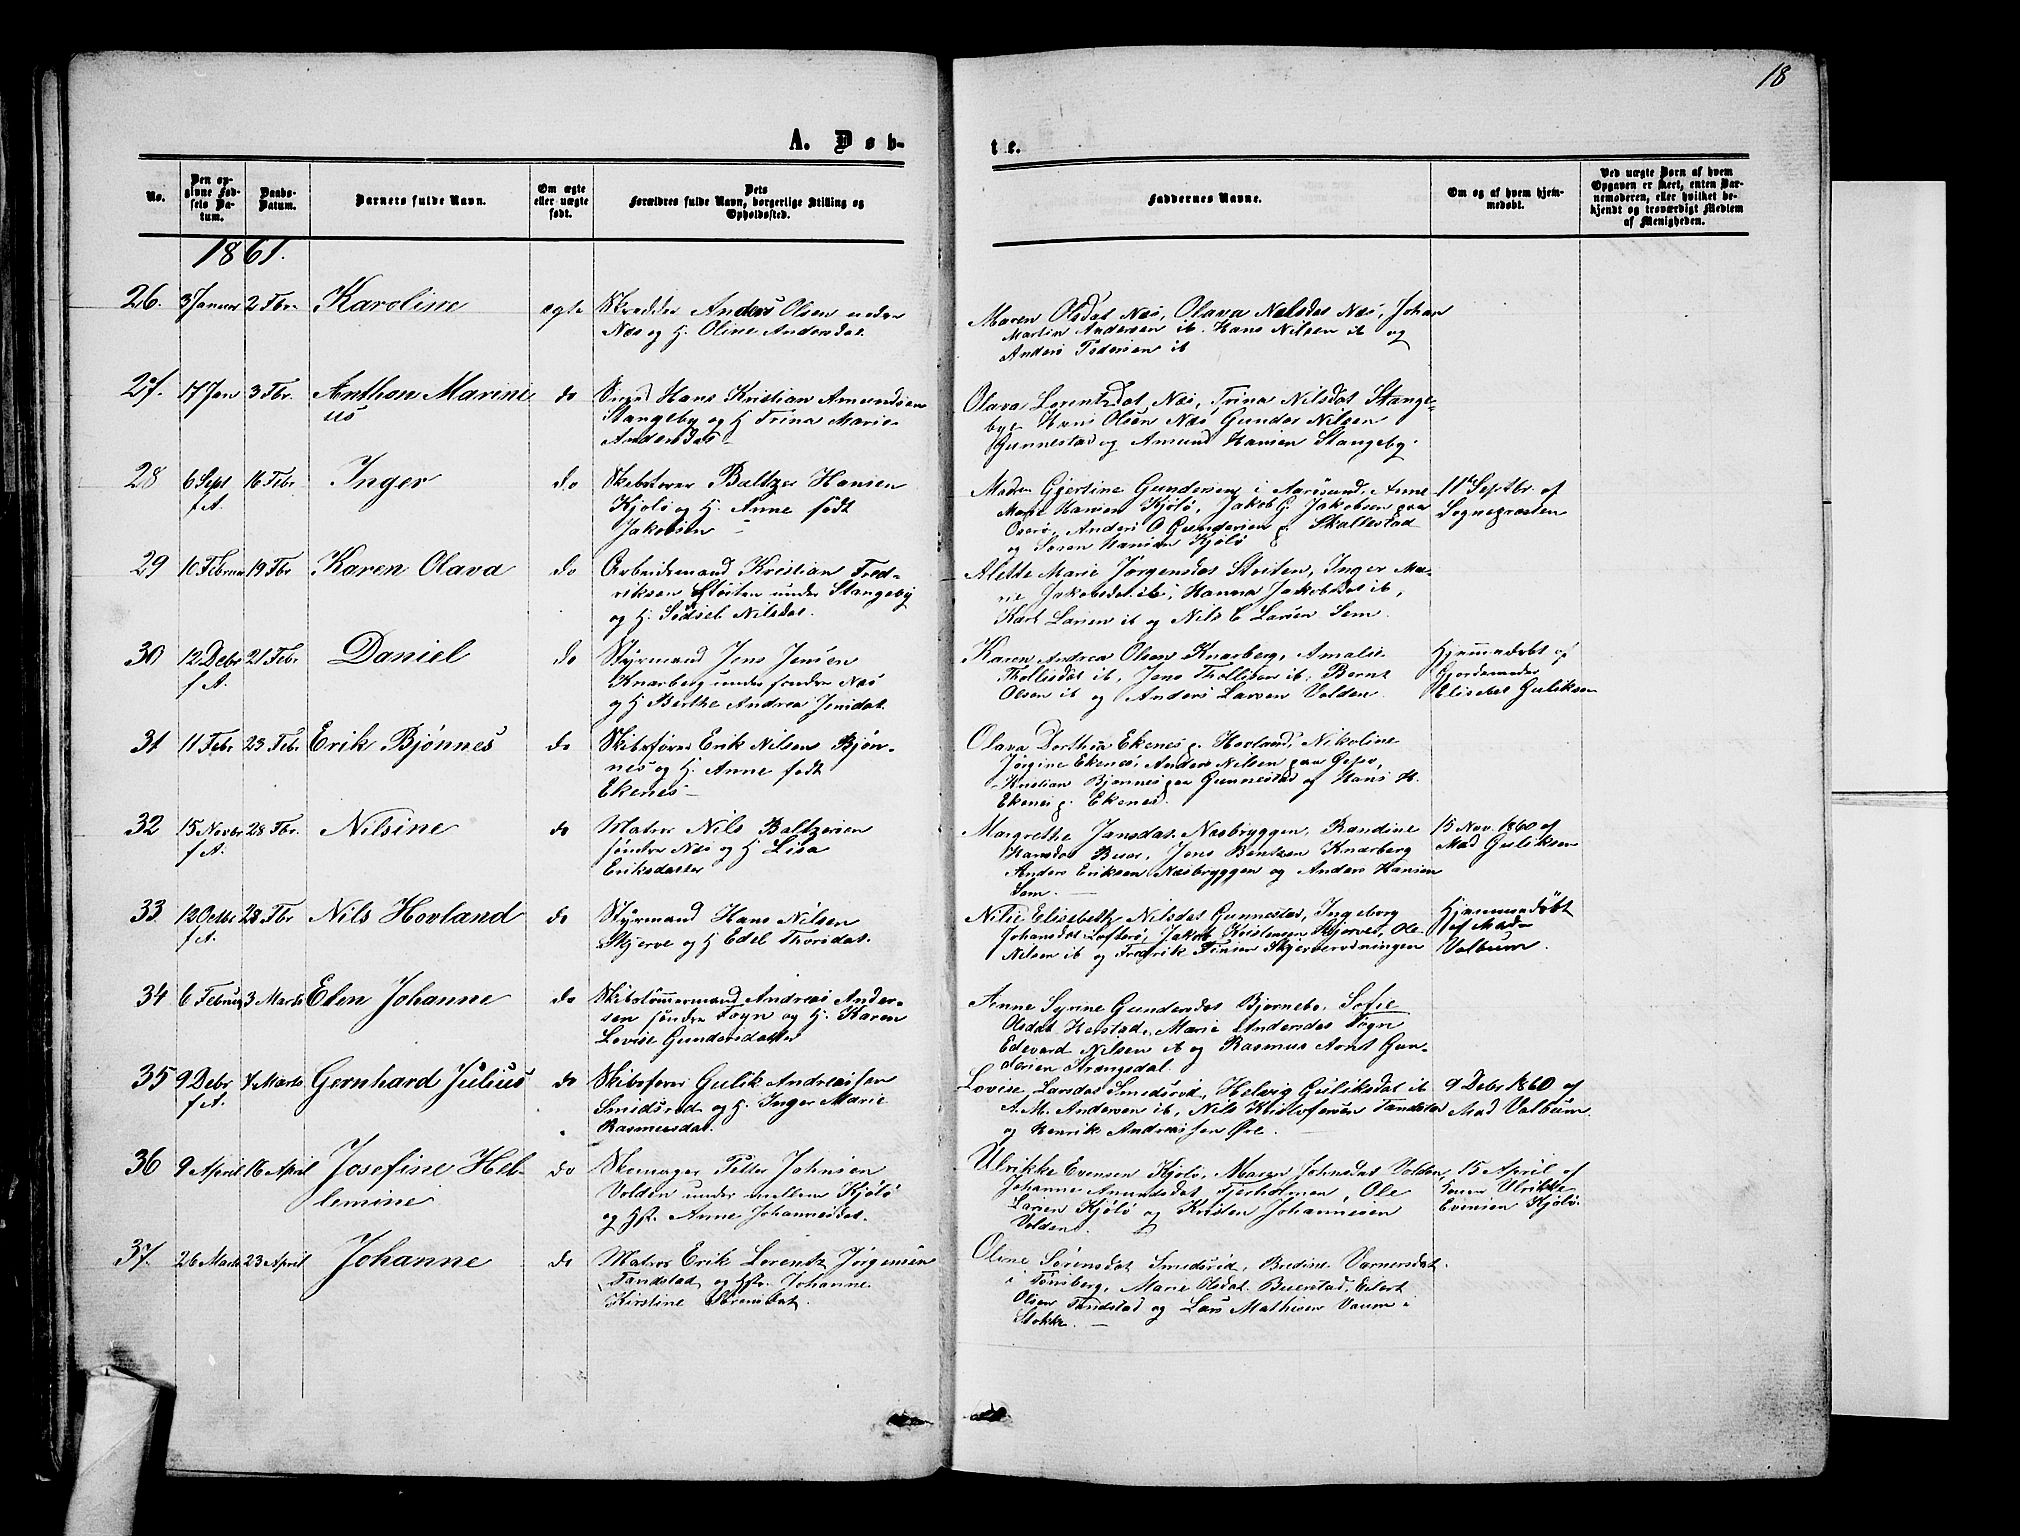 18
A. Døb-
te.
No.
Den op-
givne Fød-
sels Da-
tum.
Daabs-
Datum.
Barnets fulde Navn.
Om ægte
eller uægte
født.
Dets
Forældres fulde Navn, borgerlige Stilling og
Opholdssted.
Faddernes Navne.
Om og af hvem hjem-
medøbt.
Ved uægte Børn af hvem
Opgaven er skeet, enten Bar-
nemoderen, eller hvilket be-
kjendt og troværdigt Medlem
af Menigheden.
1861.
26. 3 Januar 2 Fbr. Karoline ægte Skrædder Anders Olsen nedre
Næs og H. Oline Andersdat.
Maren Olsdat Næs, Olava Nelsdat Næs, Johan
Martin Andersen ib. Hans Nilsen ib og
Anders Pedersen ib
27. 17 Jan 3 Fbr. Anthon Marini
us
do Hans Kristian Amundsen
Stangeby og H Trina Marie
Andersdat
Olava Lorentzdat Næs, Trina Nilsdat Stange-
bye Hans Olsen Næs Gunder Nilsen
Gunnestad og Amund Hansen Stangeby.
28 6 Sept
f A.
16 Febr Inger do Skibsfører Baltzer Hansen
Kjølø og H. Anne født
Jakobsen
Madm Gjertine Gundersen i Aarøsund, Anne
Marie Hansen Kjølø, Jakob G. Jakobsen paa
Oserø, Anders O Gundersen p. Skallestad
og Søren Hansen Kjølø
11te Septbr. af
Sognepræsten
29 10 Februar 19 Fbr Karen Olava do Arbeidsmand Kristian Fred-
riksen Støiten under Stangeby
og H. Sidsel Nilsdat.
Alette Marie Jørgensdat Støiten, Inger Ma-
rie Jakobsdat ib, Hanna Jakobsdat ib,
Karl Larsen ib og Nils C Larsen Sem.
30 12 Debr
f A.
21 Febr Daniel do Styrmand Jens Jensen
Knarberg under søndre Næs
og H Berthe Andrea Jensdat.
Karen Andrea Olsen Knarberg, Amalie
Thollisdat ib, Jens Thollisen ib. Bernt
Olsen ib og Anders Larsen Volden.
Hjemmedøbt af
Jordemoder
Elisebet Guliksen
31 11 Febr 23 Febr Erik Bjønnes do Skibsfører Erik Nilsen Bjøn-
nes og H. Anne født
Ekenes
Olava Dorthea Ekenes p. Hovland, Nikoline
Jørgine Ekenes, Anders Nilsen paa Gipø,
Kristian Bjønnes paa Gunnestad og Hans H.
Ekenes p. Ekenes.
32 15 Novbr
f A.
28 Fbr. Nilsine do Matros Nils Baltzersen
søndre Næs og H Lisa
Eriksdatter
Margrethe Jansdat. Næsbryggen, Randine
Hansdat Buer, Jens Bentzen Knarberg
Anders Eriksen Næsbryggen og Anders Hansen
Sem.
15 Nov. 1860 af
Mad Guliksen
33 12 Octbr
f A.
28 Fbr Nils Hovland do Styrmand Hans Nilsen
Skjerve og H Edel Thorsdat.
Nilie Elisebeth Nilsdat Gunnestad, Ingeborg
Johansdat Lofterø, Jakob Kristensen Skjerve, Ole
Nilsen ib og Fredrik Skjerverødningen
Hjemmedøbt
af Mad
Valbum.
34 6 Februar 3 Marts Elen Johanne do Skibstømmermand Andreas Ander-
sen søndre Føyn og H. Karen
Lovise Gundersdatter
Anne Syrine Gundersdat Bjørnebo, Sofie
Olsdat Harstad, Marie Andersdat Føyn
Edevard Nilsen ib og Rasmus Arnt Gun-
dersen Strengsdal.
35 9 Debr
f A.
4 Marts Gernhard Julius do Skibsfører Gulik Andreassen
Smidsrød og H. Inger Marie
Rasmusdat.
Lovise Larsdat Smedsrød, Helvig Guliksdat ib
A. M. Andersen ib, Nils Kristofersen Tandstad
og Henrik Andreassen Øre.
9 Debr 1860 af
Mad Valbum
36 9 April 16 April Josefine Hel-
lemine
do Skomager Petter Johnsen
Volden under mellem Kjølø
og Hst. Anne Johannesdat.
Ulrikke Evensen Kjølø, Maren Johnsdat Volden,
Johanne Amundsdat Fjerholmen, Ole
Larsen Kjølø og Kristen Johannesen
Volden.
15 April af
Konen Ulrikke
Evensen Kjølø.
37. 26 Marts 23 April Johanne do Matros Erik Lorentz Jørgensen
Tandstad og Hst. Johanne
Kirstine Sørensdat.
Oline Sørensdat Smedsrød, Bredine Varnersdat
i Tønsberg, Marie Olsdat. Buerstad, Eilert
Olsen Tandstad og Lars Mathisen Vaum i
Stokke.